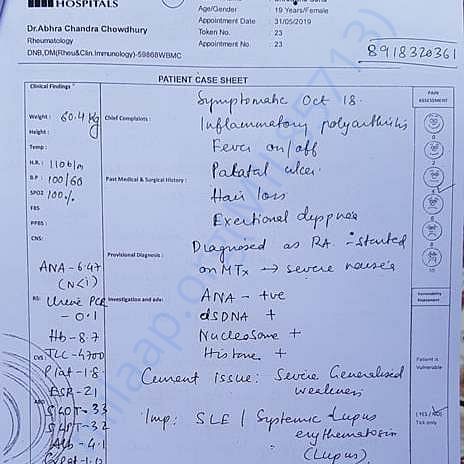 HOSPITALS
Age/Gender : 19 Years/Female
Appointment Date : 31/05/2019
Dr.Abhra Chandra Chowdhury
Token No. : 23
Rheumatology
Appointment No. : 23
DNB,DM(Rheu&Clin.Immunology)-59868WBMC
8918320361
PATIENT CASE SHEET
Clinical Findings
PAIN ASSESSMENT
Symptomatic Oct 18.
Weight : 60.4 kg
Chief Complaints :
Inflammatory polyarthritis
Height :
Fever on/off
Temp :
Palatal ulcer
H.R. : 110 b/m
B.P : 100/60
Past Medical & Surgical History :
Hair loss
SPO2 100%
FBS
Exertional dyspnea
PPBS :
CNS:
Provisional Diagnosis :
Diagnosed as RA - started
on MTx → severe nausea
ANA - 6.47
(N<1)
Vulnerability Assessment
RS: Urine PCR
- 0.1
Investigation and adv:
ANA - +ve
dsDNA +
Hb - 8.7
Nucleosome +
CVS
TLC - 4700
Histone +
Patient is
Vulnerable
Plat - 1.8
Current issue: Severe Generalised
weakness
ESR - 21
SGOT - 33
Imp: SLE / Systemic Lupus
(YES / NO)
Tick only
SGPT - 32
erythematosus
Alb - 4.1
(Lupus)